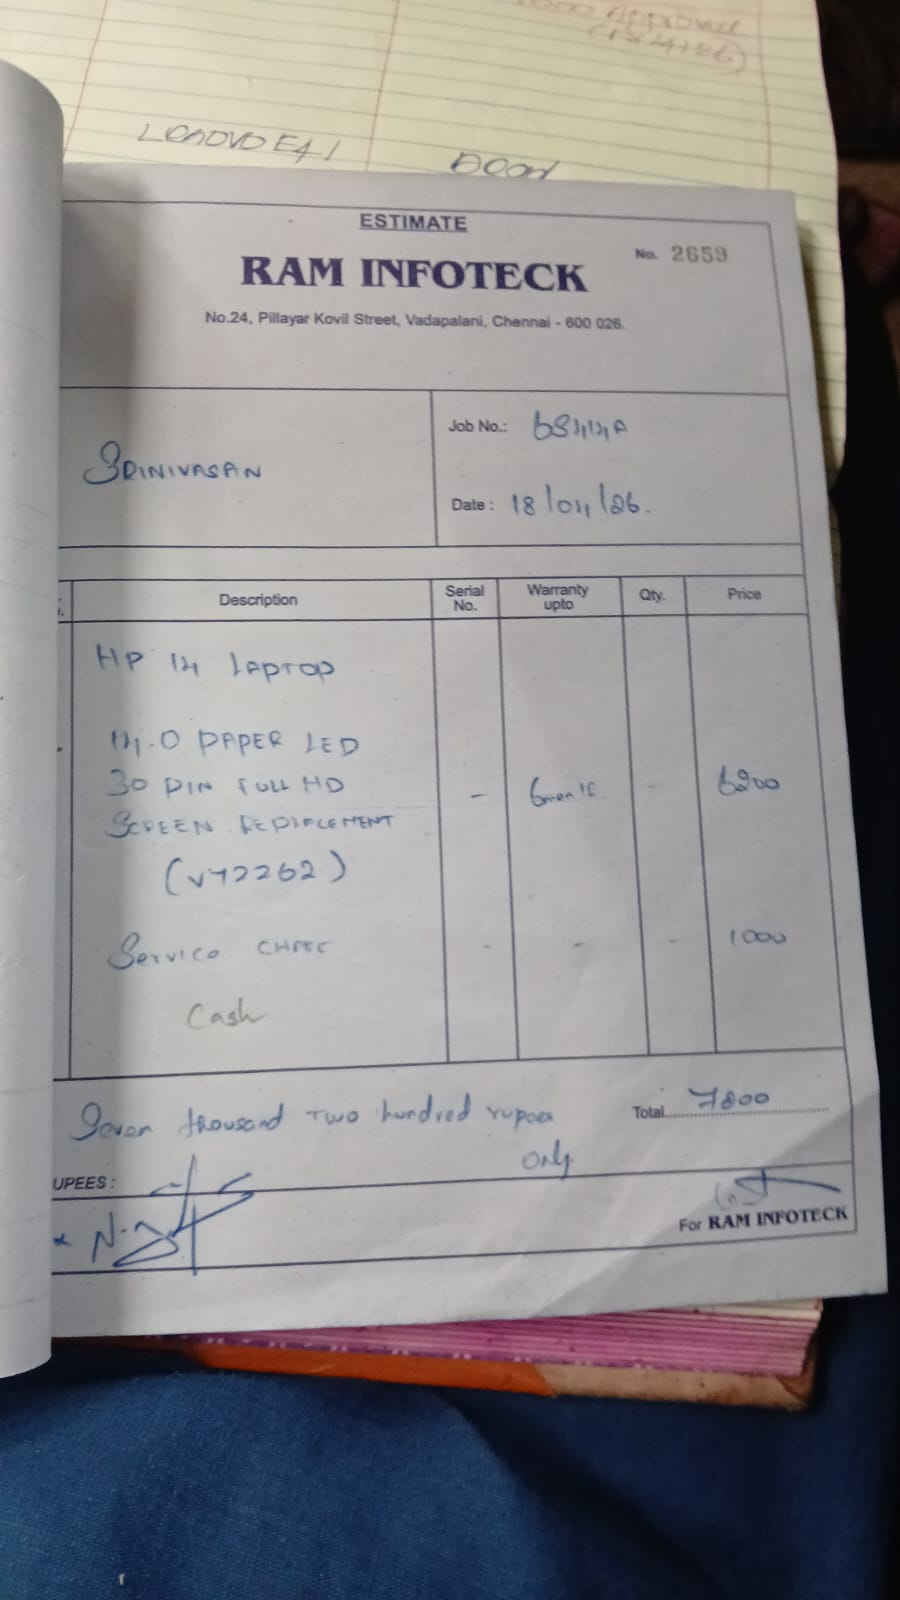 (18/4/26)
LENOVO E41
Dead
ESTIMATE
RAM INFOTECK
No. 2659
No.24, Pillayar Kovil Street, Vadapalani, Chennai - 600 026.
SRINIVASAN
Job No.:
Date : 18/04/26.
Description
Serial No.
Warranty upto
Qty.
Price
HP 14 LAPTOP
14.0 PAPER LED
30 PIN FULL HD
SCREEN REPLACEMENT
- - 6200
(V72262)
Service - - - 1000
Cash
Seven thousand Two hundred rupees
only
Total
UPEES :
For RAM INFOTECK